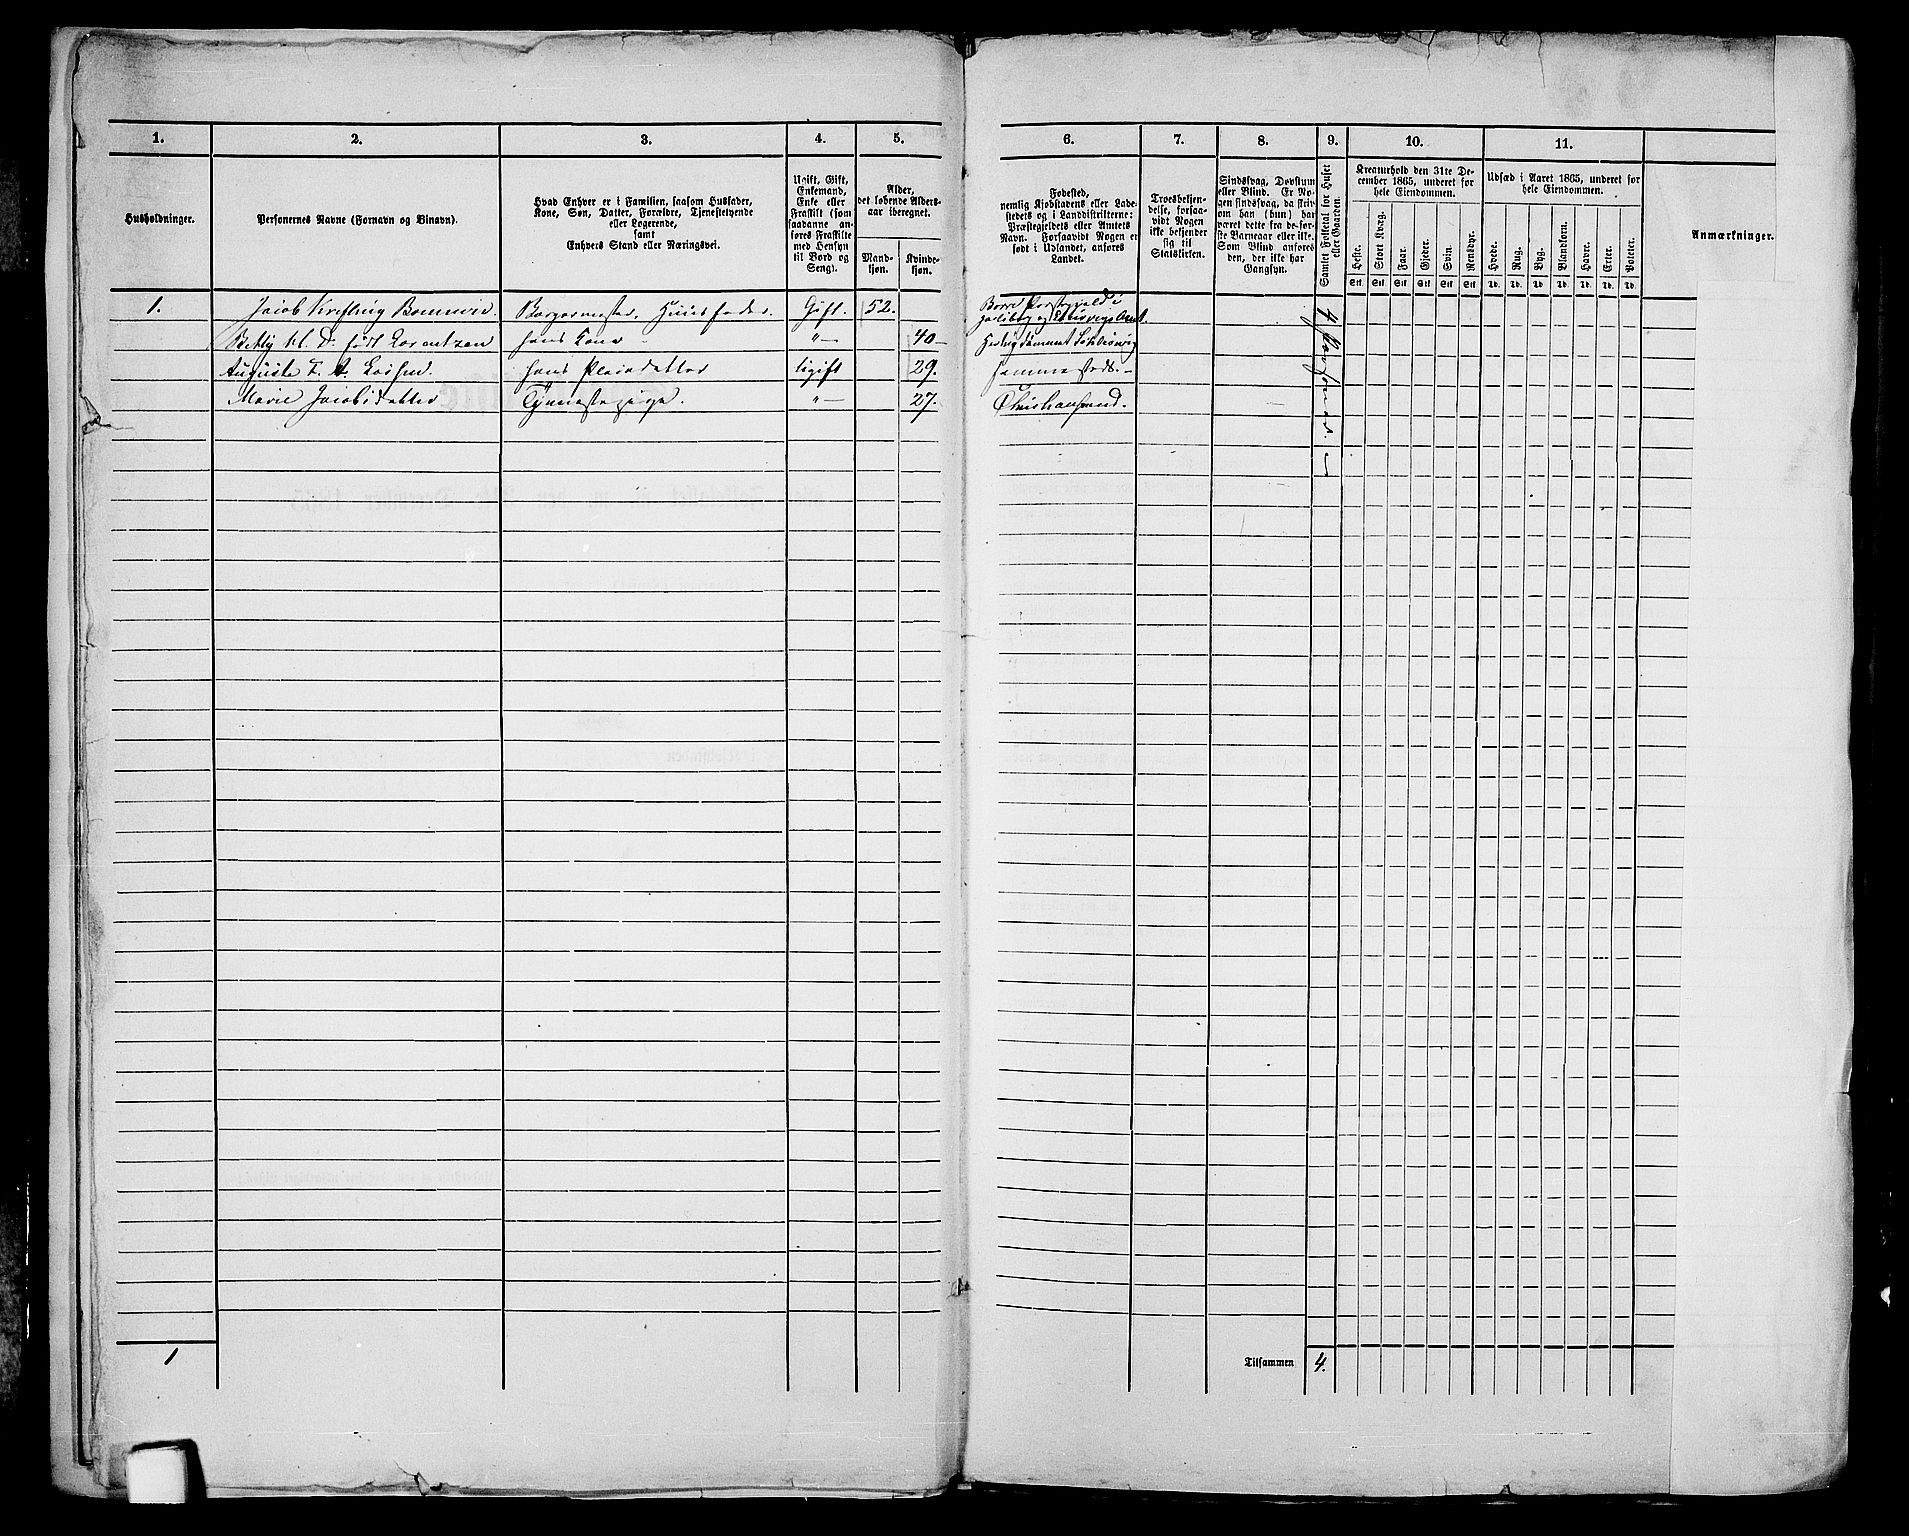 1. 2. 3. 4. 5. 6. 7. 8. 9. 10. 11.
Husholdninger.
Personernes Navne (Fornavn og Binavn).
Hvad Enhver er i Familien, saasom Husfader,
Kone, Søn, Datter, Forældre, Tjenestetyende
eller Logerende,
samt
Enhvers Stand eller Næringsvei.
Ugift, Gift,
Enkemand,
Enke eller
Fraskilt (som
saadanne an-
føres Fraskilte
med Hensyn
til Bord og
Seng).
Alder,
det løbende Alders-
aar iberegnet.
Mand-
kjøn.
Kvinde-
kjøn.
Fødested,
nemlig Kjøbstadens eller Lade-
stedets og i Landdistrikterne:
Præstegjeldets eller Amtets
Navn. Forsaavidt Nogen er
født i Udlandet, anføres
Landet.
Troesbekjen-
delse, forsaa-
vidt Nogen
ikke bekjender
sig til
Statskirken.
Sindssvag, Døvstum
eller Blind. Er No-
gen sindssvag, da skriv
om han (hun) har
været dette fra de før-
ste Barneaar eller ikke.
Som Blind anføres
den, der ikke har
Gangsyn.
Samlet Folketal for Huset
eller Gaarden.
Kreaturhold den 31te De-
cember 1865, underet for
hele Eiendommen.
Heste.
Stort Kvæg.
Faar.
Gjeder.
Svin.
Rensdyr.
Stk. Stk. Stk. Stk. Stk. Stk.
Udsæd i Aaret 1865, underet for
hele Eiendommen.
Hvede.
Rug.
Byg.
Blandkorn.
Havre.
Erter.
Poteter.
Td. Td. Td. Td. Td. Td. Td.
Anmærkninger.
1. Jacob Krefting Bonnevie. Borgermester, Huusfader. Gift. 52. Borre Præstegjeld i
Jarlsberg og Laurvigs Amt.
Betty født Lorentzen hans Kone "— 40— Hertugdømmet Schleswig
Auguste hans Pleiedatter Ugift 29. sammesteds.
Marie Jacobsdatter Tjenestepige. "— 27. Christiansand.
4
1
Tilsammen 4.